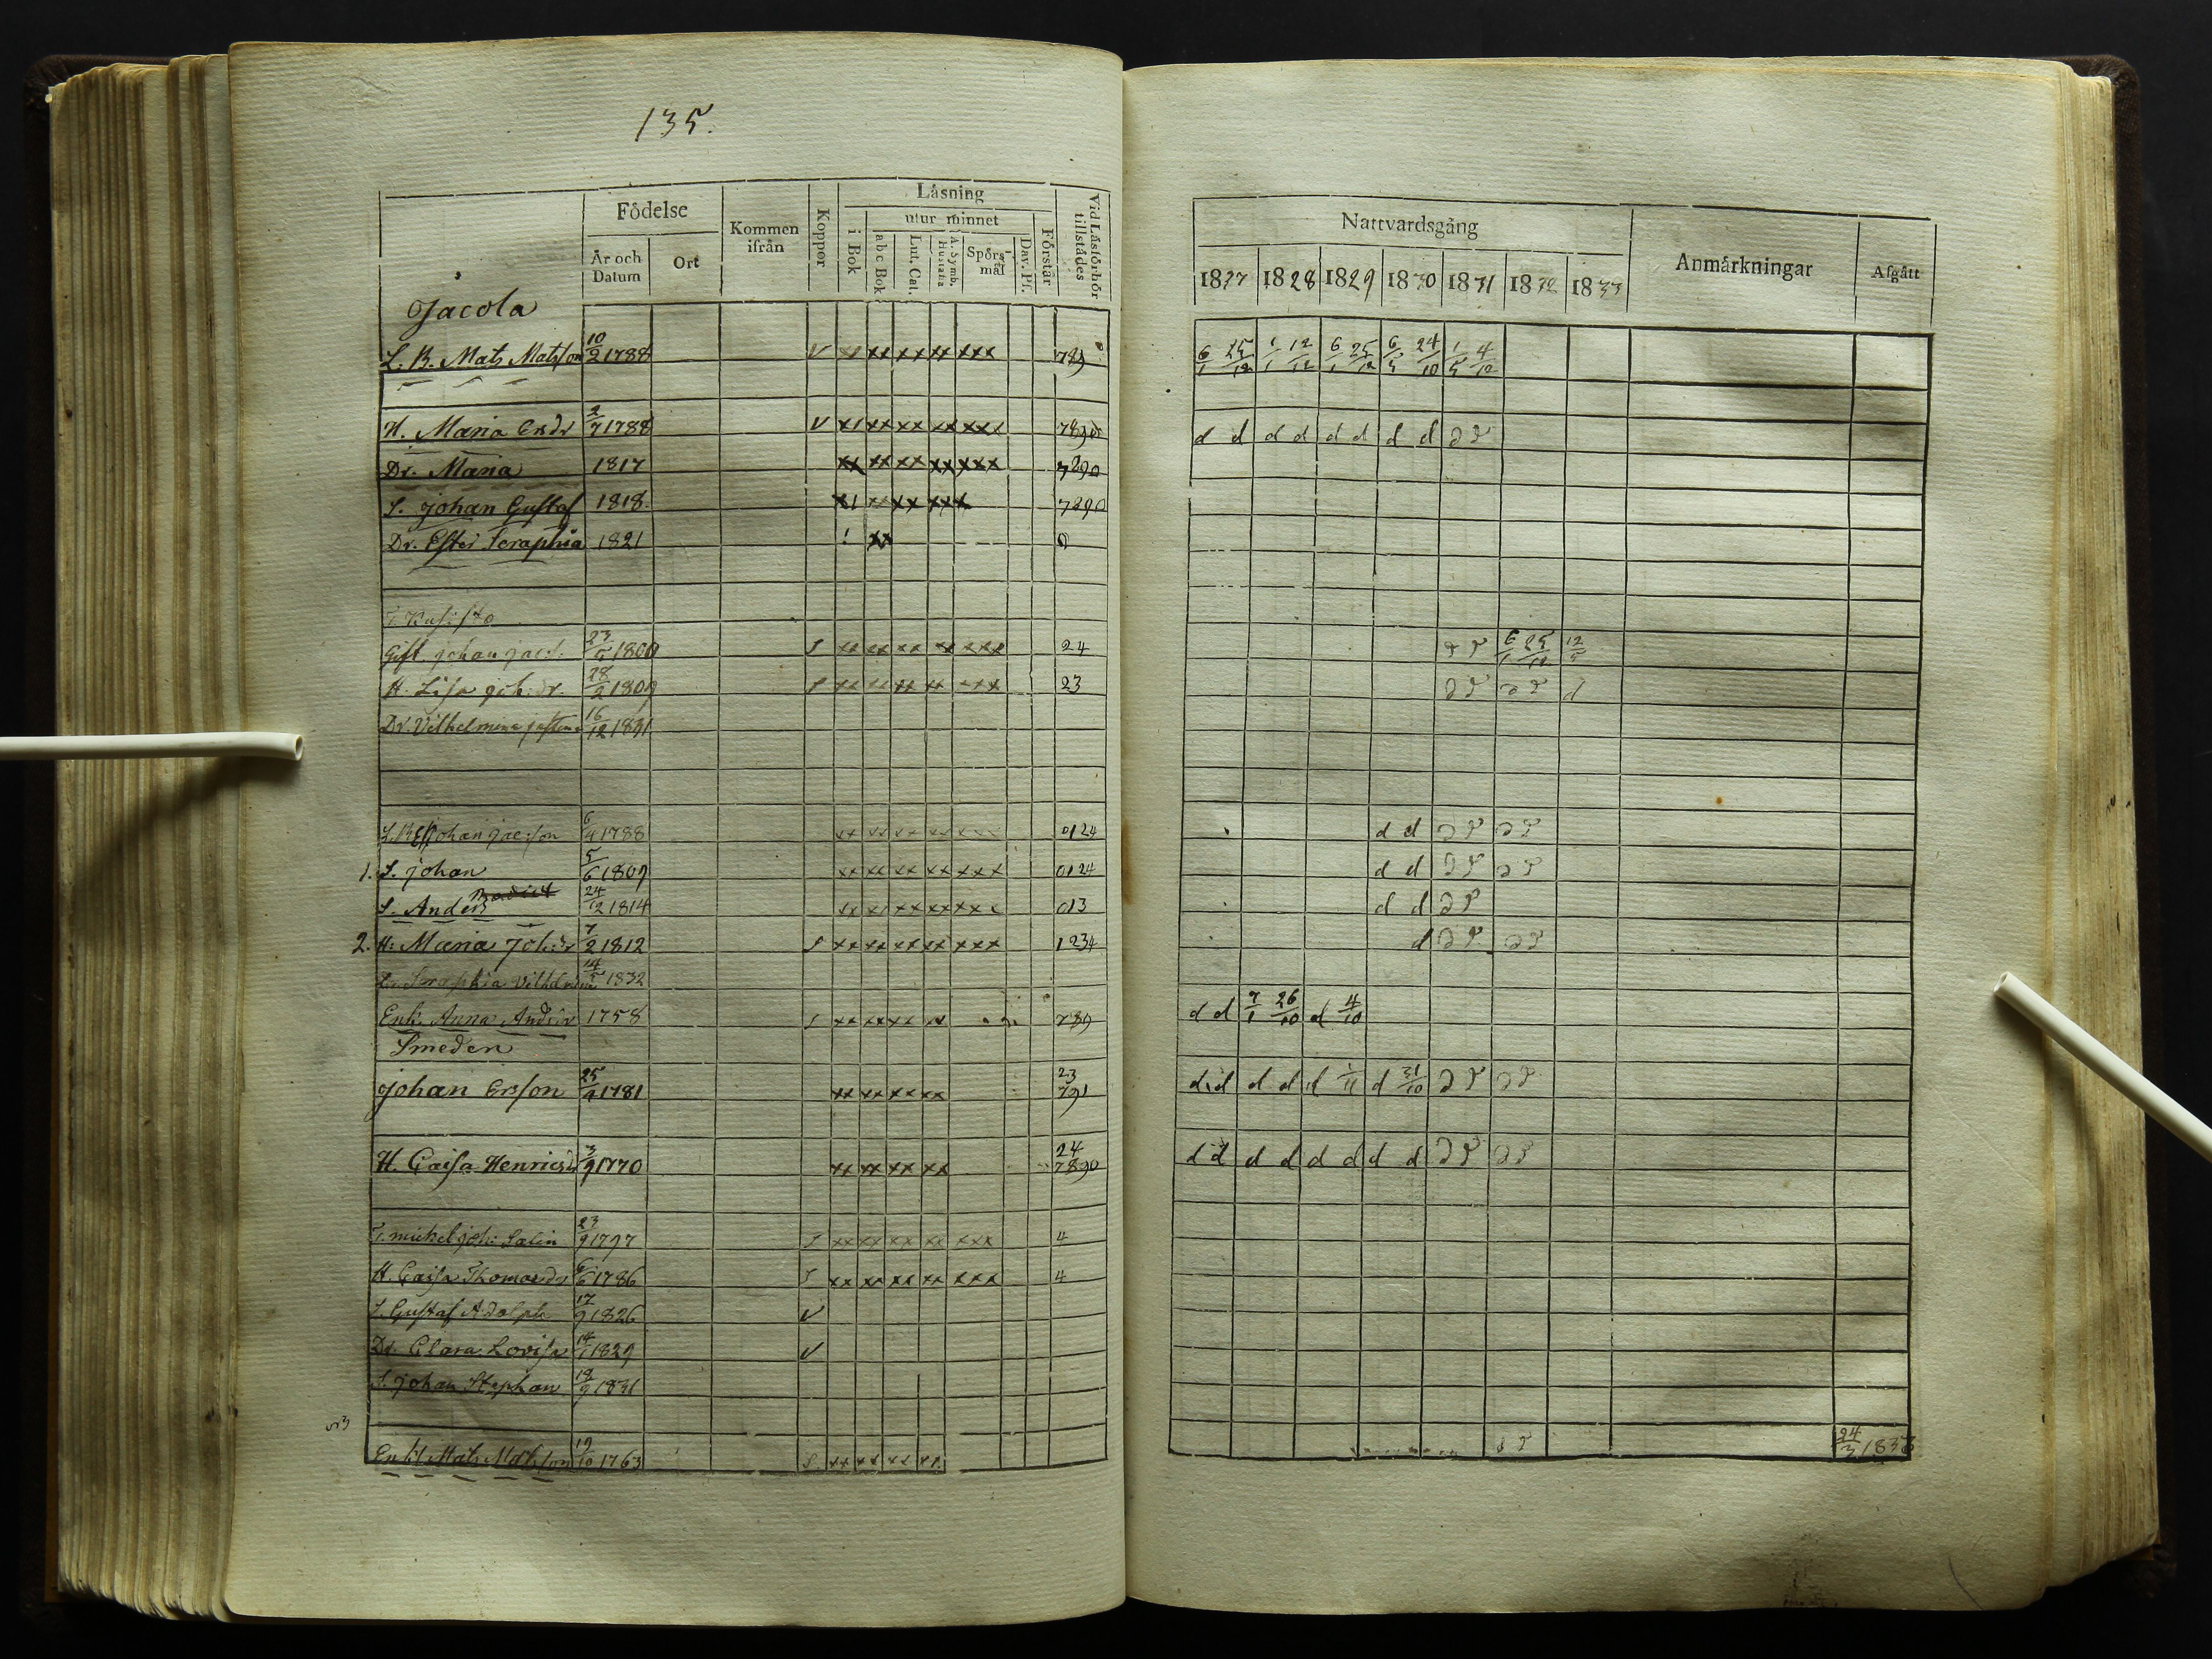 135.
Födelse
Kommen ifrån
Koppor
Läsning
i Bok
utur minnet
a b c Bok
Lut. Cat.
A. Symb. Hustafla
Spörsmål
Dav. Ps.
Förstår
Vid Läsförhör tillstådes
År och Datum
Ort
Nattvardsgång
Anmärkningar
Afgått
1827 1828 1829 1830 1831 1832 1833
Jacola
L. B. Mats Matsson 10/2 1788 V xx xx xx xxx 789 6/1 25/12 1/1 12/12 6/1 25/12 6/5 24/10 1/5 4/12
H. Maria Ersdr 2/7 1788 V x1 xx xx xx xxx d d d d d d d d
Dr. Maria 1817 xx xx xx xx xxx 7890
S. Johan Gustaf 1818 x1 xx xx xxx 7890
Dr. Ester Seraphia 1821 ! xx 0
Gift. Johan Jacs. 23/5 1800 S xx xx xx xx xxx 24 6/1 25/12
H. Lisa Joh:dr. 28/2 1809 S xx xx xx xx xxx 23 d
Dr. Vilhelmina 16/12 1831
Johan Jac:son 6/4 1788 xx xx xx xx xxx 0124 d d
1. S. Johan 5/6 1809 xx xx xx xx xxx 0124 d d
S. Anders 24/12 1814 xx xx xx xx xx 013 d d
2. H: Maria Joh:dr 7/2 1812 S xx xx xx xx xxx 1234 d
Dr. Seraphia Vilhelmina 14/5 1832
Enk. Anna Andsdr 1758 S xx xx xx xx 789 d d 7/1 26/10 d 4/10
Smeden
Johan Ersson 25/4 1781 xx xx xx xx 23 791 d d d d d 1/11 d 31/10
H. Caisa Henricsdr 3/9 1770 xx xx xx xx 24 7890 d d d d d d d d
Mickel Joh: Salin 23/9 1797 S xx xx xx xx xxx 4
H. Caisa Thomasdr 6/6 1786 S xx xx xx xx xxx 4
S. Gustaf Adolph 17/9 1826 V
Dr. Clara Lovisa 14/1 1829 V
S. Johan Stephan 18/9 1831
Enkl Mats Matsson 19/10 1763 S. xx xx xx x1 24/3 1833